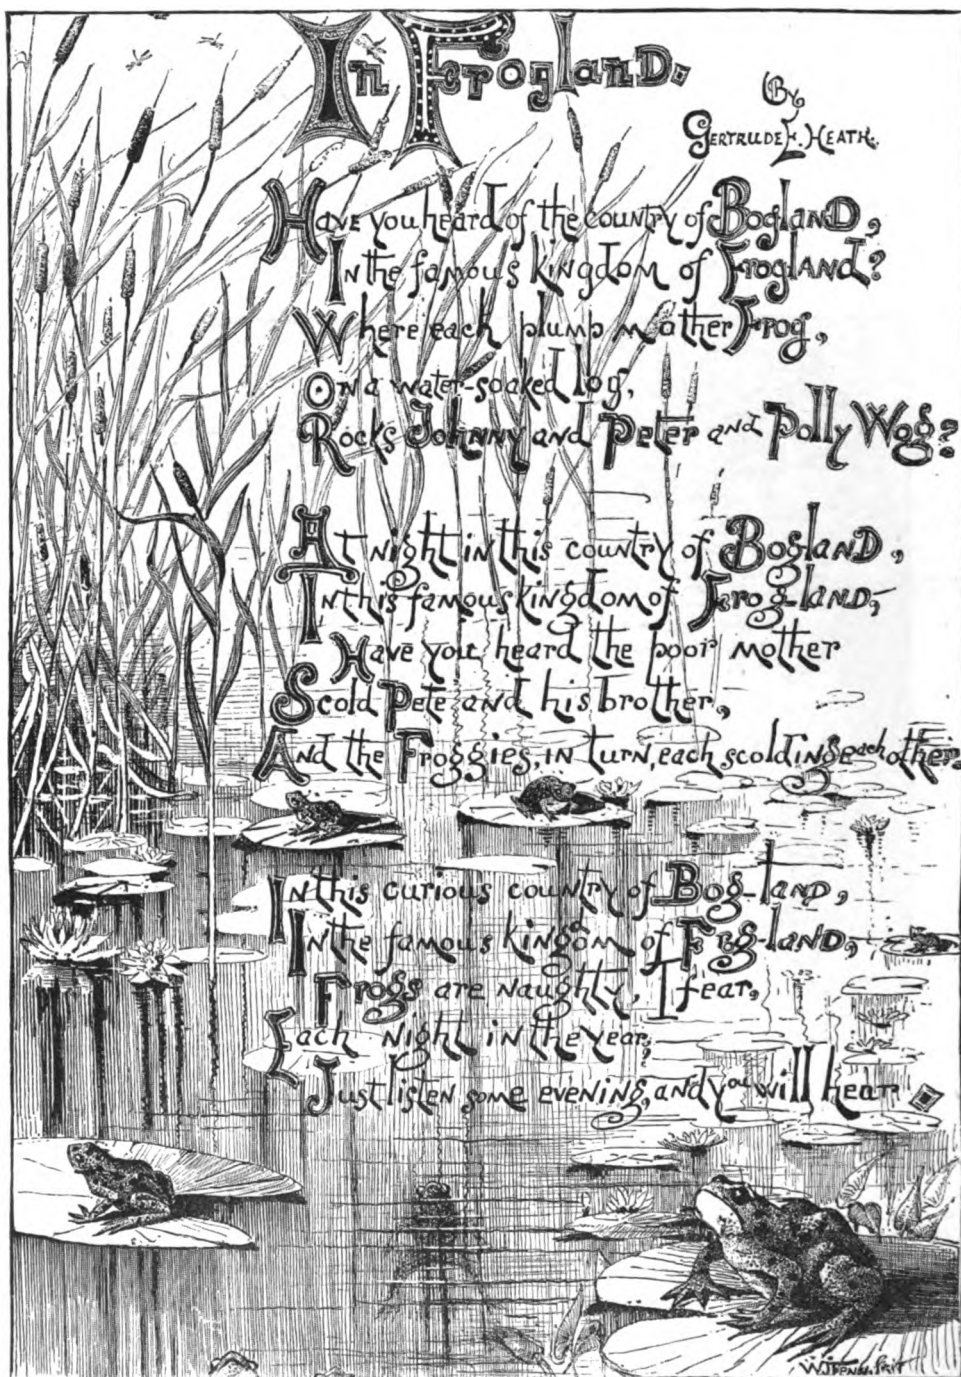 In Frogland.
By
Gertrude E. Heath.
Have you heard of the country of Bogland,
In the famous kingdom of Frogland?
Where each plump mother Frog,
On a water-soaked log,
Rocks Johnny and Peter and Polly Wog?
At night in this country of Bogland,
In this famous kingdom of Frog-land,
Have you heard the poor mother
Scold Pete and his brother,
And the Froggies, in turn, each scolding each other?
In this curious country of Bog-land,
In the famous kingdom of Frog-land,
Frogs are naughty, I fear,
Each night in the year;
Just listen some evening, and you will hear.